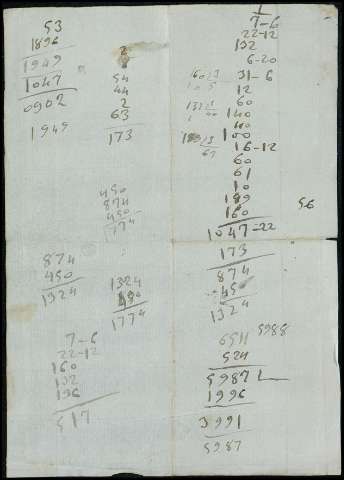 53
1896
1949
1047
0902
1949
2
8
54
44
2
63
173
490
874
450
1774
874
450
1324
1324
450
1774
7-6
22-12
160
132
196
517
1
7-6
22-12
132
6-20
31-6
12
60
140
40
100
16-12
60
61
10
189
160
1047-22
56
173
874
450
1324
5988
524
5987
1996
3991
5987